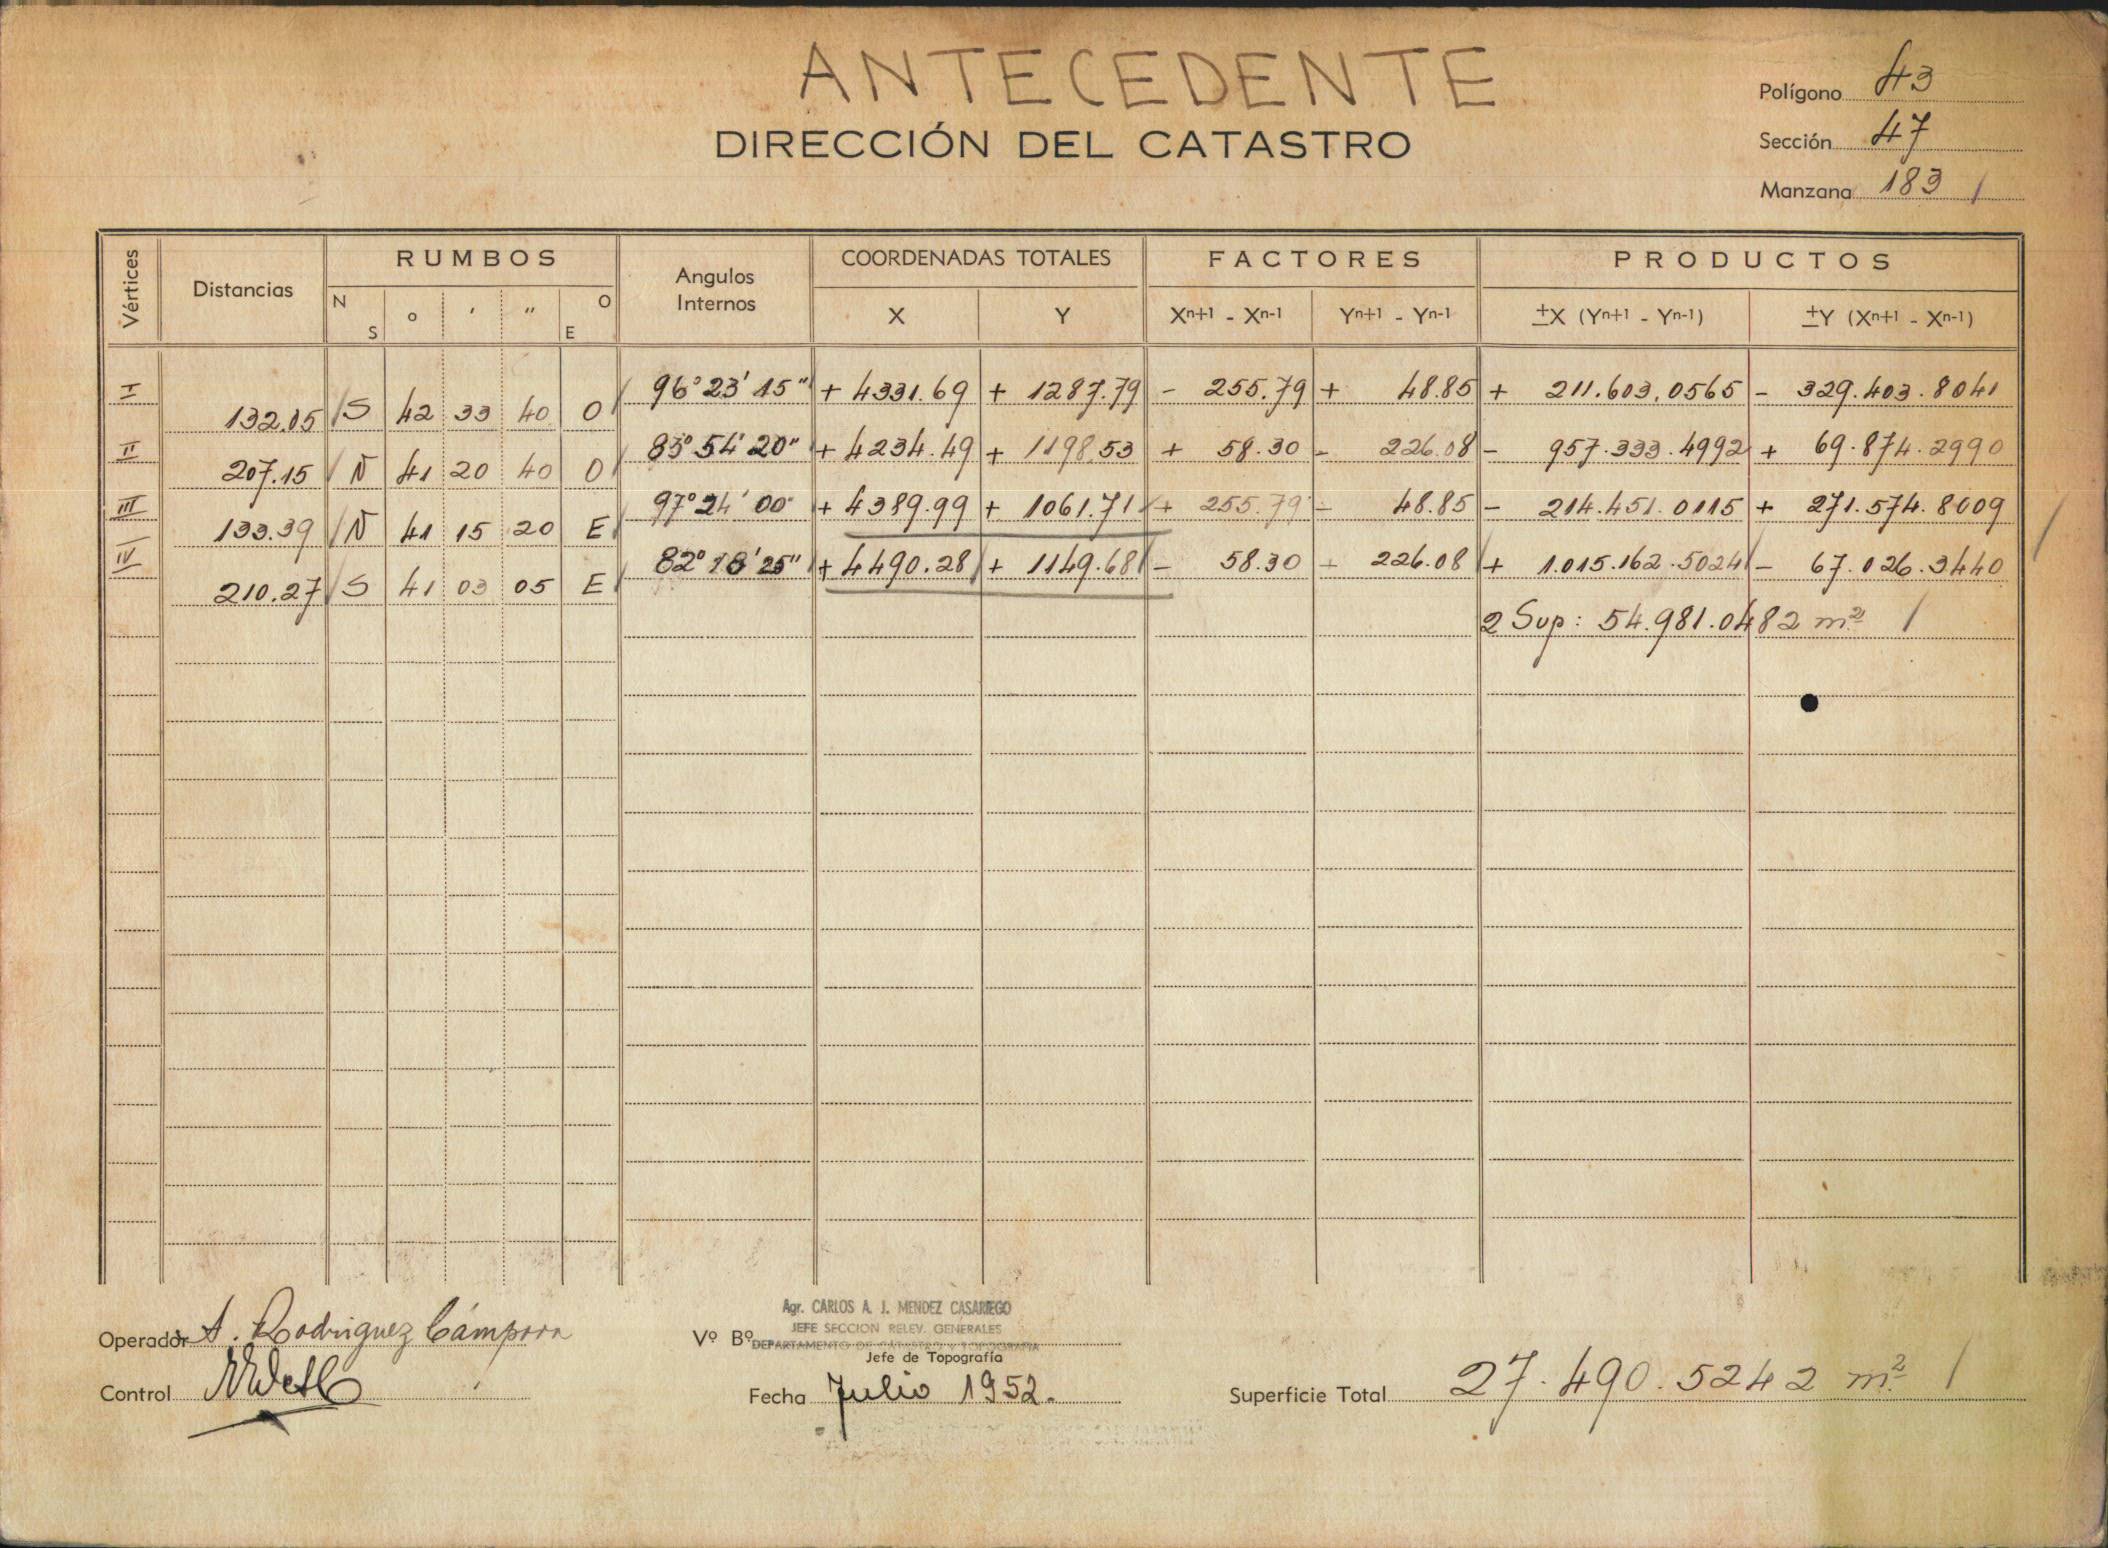 ANTECEDENTE
DIRECCIÓN DEL CATASTRO
Polígono 43
Sección 47
Manzana 183
Vértices Distancias RUMBOS Angulos Internos COORDENADAS TOTALES FACTORES PRODUCTOS
N S ° ' " O E X Y Xn+1 - Xn-1 Yn+1 - Yn-1 ±X (Yn+1 - Yn-1) ±Y (Xn+1 - Xn-1)
I 132.05 S 42 33 40 O 96° 23' 15" + 4331.69 + 1287.79 - 255.79 + 48.85 + 211.603.0565 - 329.403.8041
II 207.15 N 41 20 40 O 83° 54' 20" + 4234.49 + 1198.53 + 58.30 - 226.08 - 957.333.4992 + 69.874.2990
III 133.39 N 41 15 20 E 97° 24' 00" + 4389.99 + 1061.71 + 255.79 - 48.85 - 214.451.0115 + 271.574.8009
IV 210.27 S 41 03 05 E 82° 18' 25" + 4490.28 + 1149.68 - 58.30 + 226.08 + 1.015.162.5024 - 67.026.3440
2 Sup: 54.981.0482 m²
Operador A. Rodriguez Cámpora
Control
Agr. CARLOS A. J. MENDEZ CASARIEGO
JEFE SECCION RELEV. GENERALES
Vº Bº DEPARTAMENTO DE CATASTRO Y TOPOGRAFIA
Jefe de Topografía
Fecha Julio 1952.
Superficie Total 27.490.5242 m²